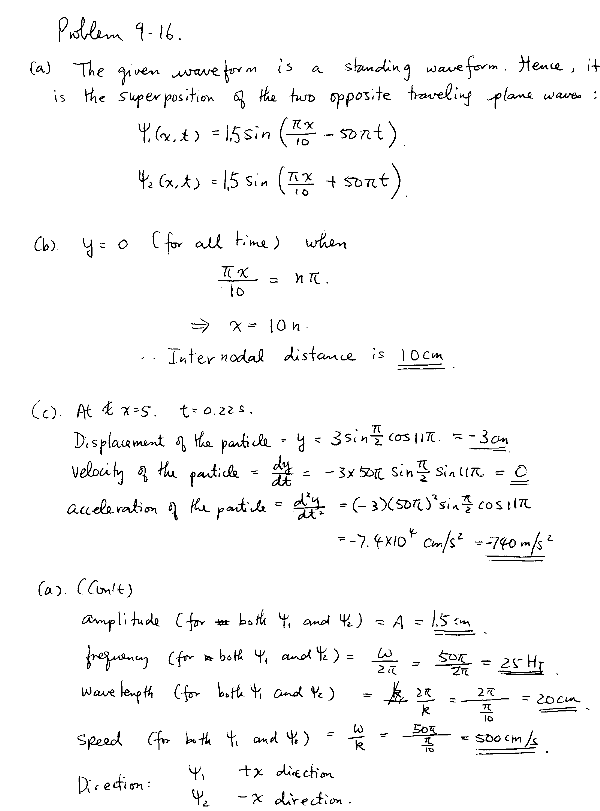 Problem 9-16.
(a) The given waveform is a standing waveform. Hence, it
is the superposition of the two opposite traveling plane waves:
Ψ₁(x,t) = 1.5 sin (πx/10 - 50πt)
Ψ₂(x,t) = 1.5 sin (πx/10 + 50πt)
(b). y = 0 (for all time) when
πx/10 = nπ.
⇒ x = 10n.
∴ Internodal distance is 10cm.
(c). At x=5. t=0.22s.
Displacement of the particle = y = 3 sin π/2 cos 11π. = -3cm
velocity of the particle = dy/dt = -3x50π sin π/2 sin 11π = 0
acceleration of the particle = d²y/dt² = (-3)(50π)² sin π/2 cos 11π
= -7.4x10⁴ cm/s² = -740 m/s²
(a). (Con't)
amplitude (for both Ψ₁ and Ψ₂) = A = 1.5 cm.
frequency (for both Ψ₁ and Ψ₂) = ω/2π = 50π/2π = 25 Hz.
wavelength (for both Ψ₁ and Ψ₂) = 2π/k = 2π/(π/10) = 20cm.
speed (for both Ψ₁ and Ψ₂) = ω/k = 50π/(π/10) = 500 cm/s.
Direction: Ψ₁ +x direction
Ψ₂ -x direction.